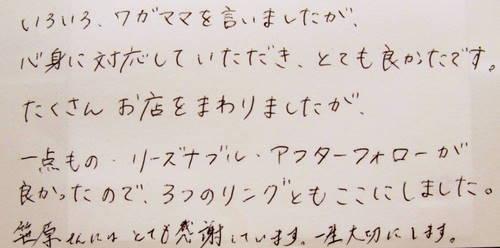 いろいろ、ワガママを言いましたが、
心身に対応していただき、とても良かたです。
たくさん お店をまわりましたが、
一点もの・リーズナブル・アフターフォローが
良かったので、3つのリングともここにしました。
笹原さんには とても感謝しています。一生大切にします。